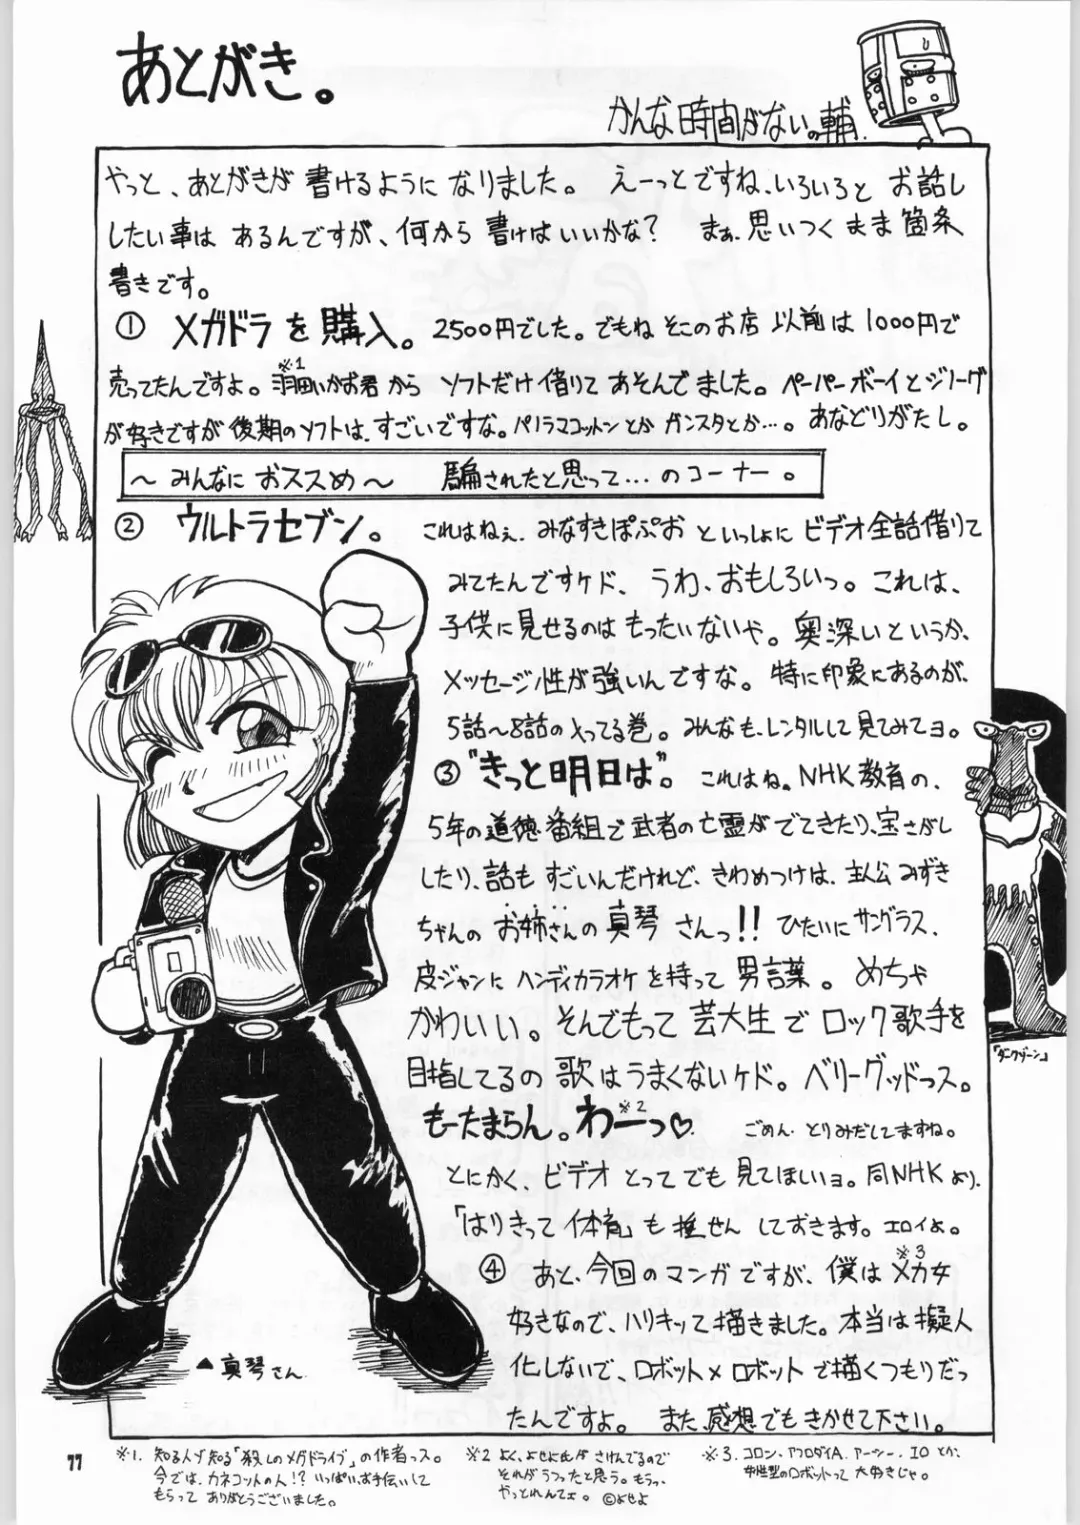 あとがき。
かんな時間がないの輔
やっと、あとがきが 書けるように なりました。 えーっとですね、いろいろと お話し
したい事は あるんですが、何から 書けばいいかな？ まぁ、思いつくまま 箇条
書きです。
① メガドラ を 購入。 2500円でした。でもね そこのお店 以前は 1000円で
売ってたんですよ。羽田いかお君から ソフトだけ借りて あそんでました。ペーパーボーイとジノーグ
※1
が好きですが 後期のソフトは、すごいですな。パノラマコットンとか ガンスタとか…。あなどりがたし。
〜 みんなに おススめ 〜 騙されたと思って…のコーナー。
② ウルトラセブン。 これはねぇ、みなすきぽぷお といっしょに ビデオ全話借りて
みてたんですケド、うわ、おもしろいっ。これは、
子供に見せるのは もったいないや。奥深いというか、
メッセージ性が強いんですな。特に印象にあるのが、
5話〜8話の入ってる巻。みんなも、レンタルして見てみてヨ。
③ “きっと明日は”。 これはね。NHK教育の、
5年の道徳番組で武者の亡霊がでてきたり、宝さがし
したり、話も すごいんだけれど、きわめつけは、主人公みずき
ちゃんの お姉さんの 真琴 さんっ!! ひたいにサングラス、
皮ジャンに ハンディカラオケを持って 男言葉。めちゃ
かわいい。そんでもって 芸大生で ロック歌手を
目指してるの 歌はうまくないケド。ベリーグッドっス。
もーたまらん。わーっ♡ ごめん、とりみだしてますね。
※2
とにかく、ビデオ とってでも 見てほしいヨ。同NHK より、
「はりきって 体育」も 推せん しておきます。エロイよ。
④ あと、今回のマンガですが、僕は メカ女
※3
好きなので、ハリキッて描きました。本当は擬人
化しないで、ロボット×ロボットで描くつもりだっ
たんですよ。 また、感想でも きかせて下さい。
『ダークゾーン』
▲真琴さん
77
※1. 知る人ゾ知る「殺しのメガドライブ」の作者っス。
今では、カネコットの人!? いっぱい、お手伝いして
もらって ありがとうございました。
※2 よく、よせよ氏が さけんでるので
それがうつったと思う。もうっ、
やっとれんてェ。 ©よせよ
※3. コロン、アフロダイA、アーシー、IO とか、
女性型のロボットって 大好きじゃ。